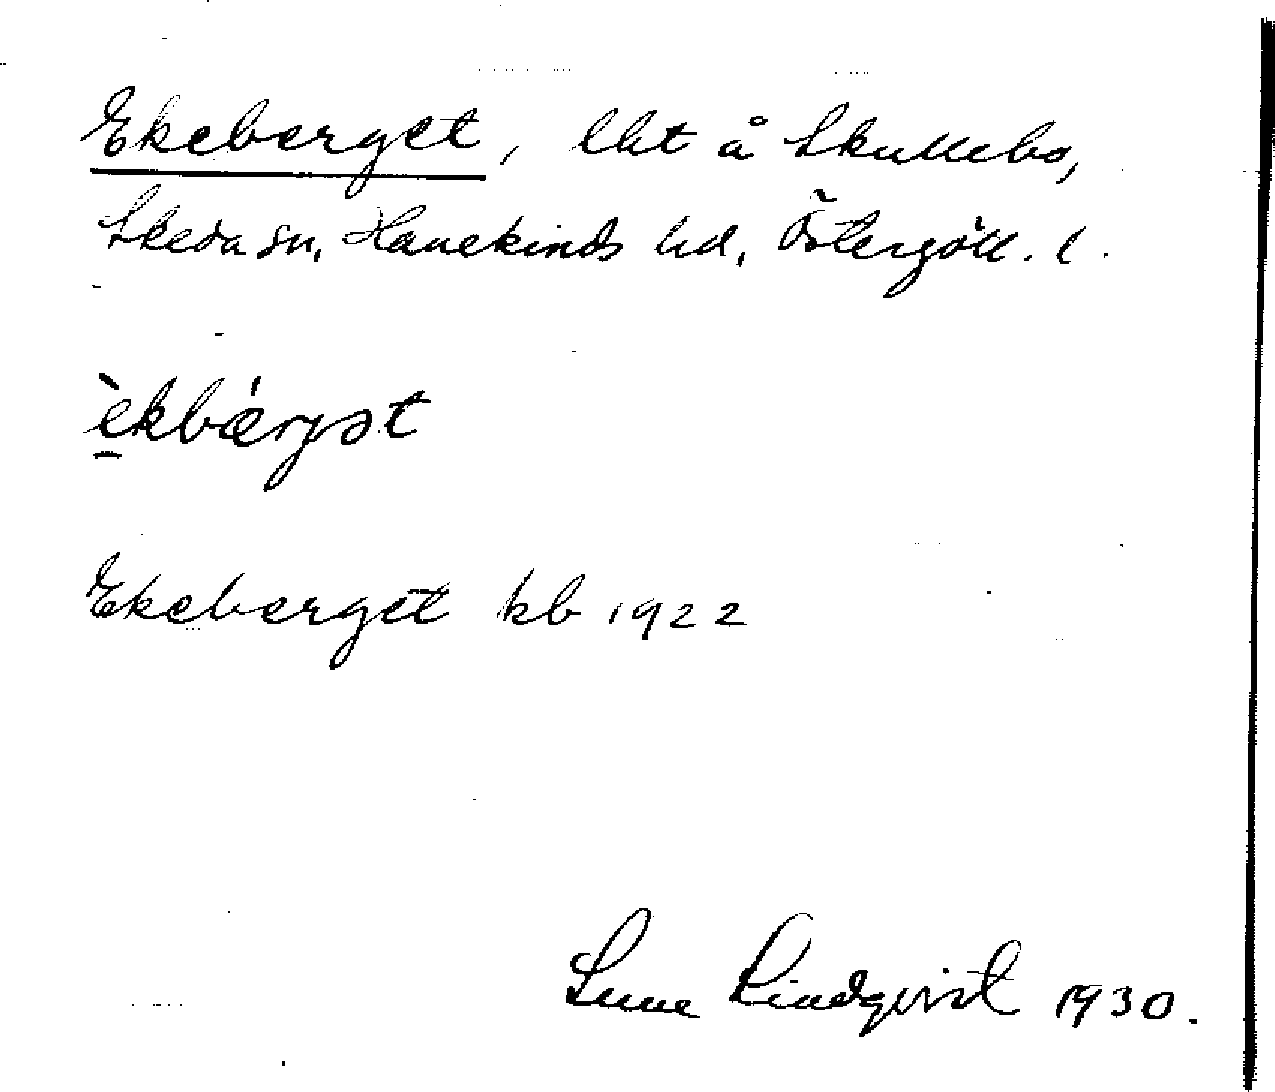 Ekeberget, lht å Skullebo,
Skeda sn, Hanekinds hd, Östergötl. l.
èkbærjət
Ekeberget kb 1922
Sune Lindqvist 1930.